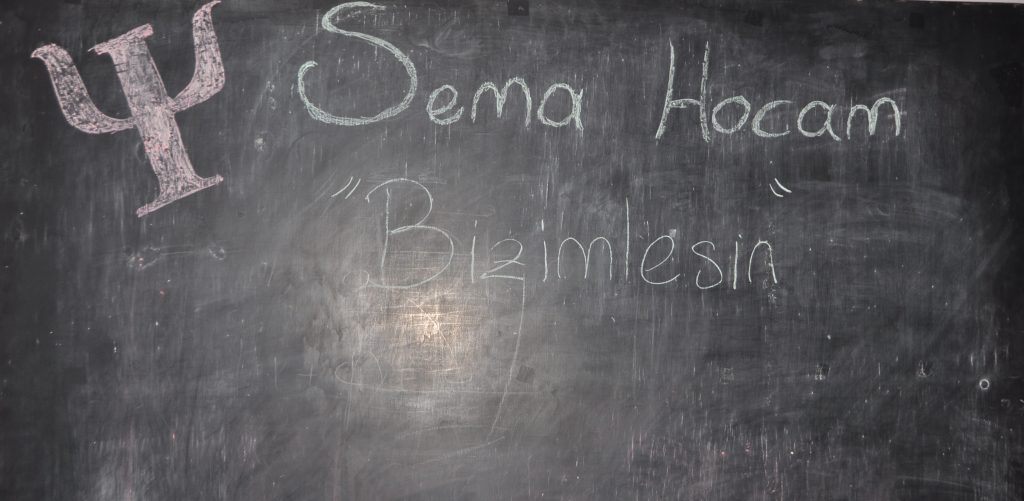 Ψ Sema Hocam
"Bizimlesin"